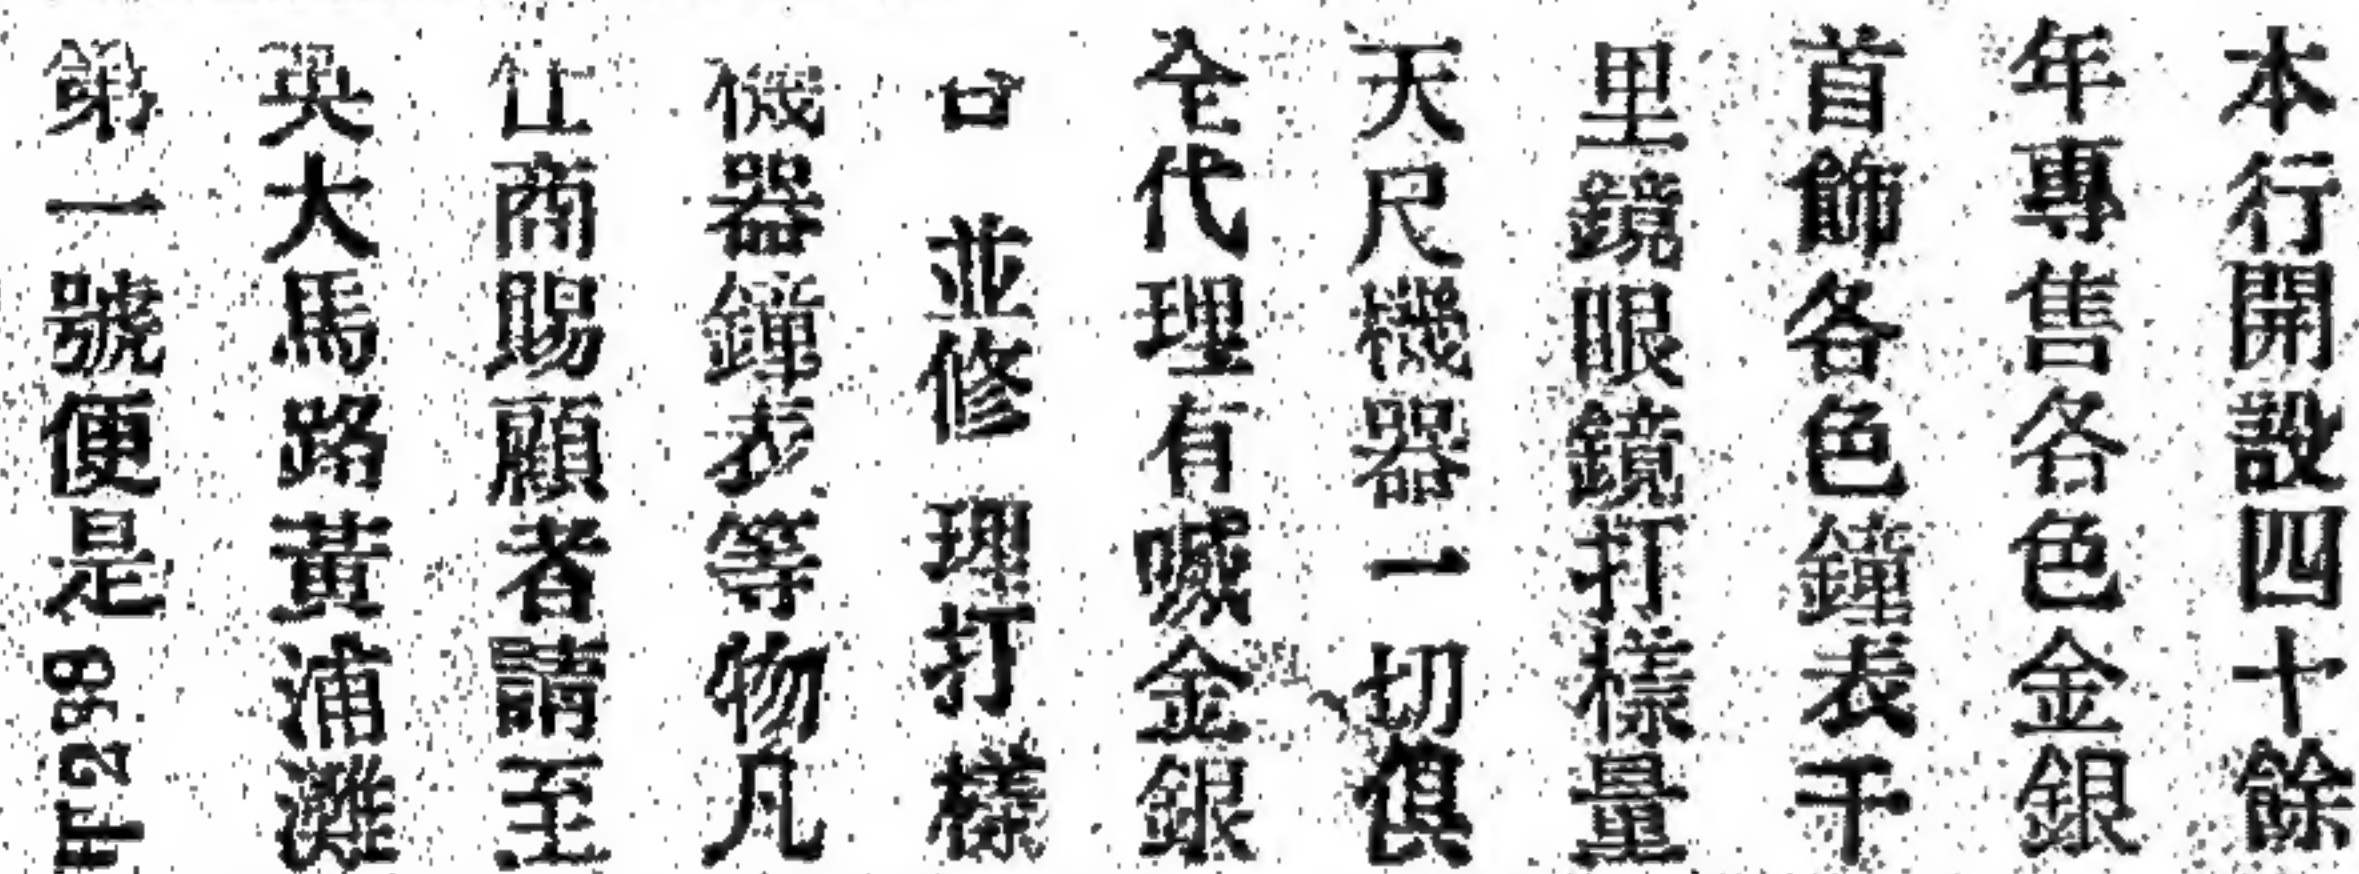 本行開設四十餘
年專售各色金銀
首飾各色鐘表千
里鏡眼鏡打樣量
天尺機器一切俱
全代理有金銀
並修理打樣
機器鐘表等物凡
仕商賜顧者請至
英大馬路黃浦灘
第一號便是 298